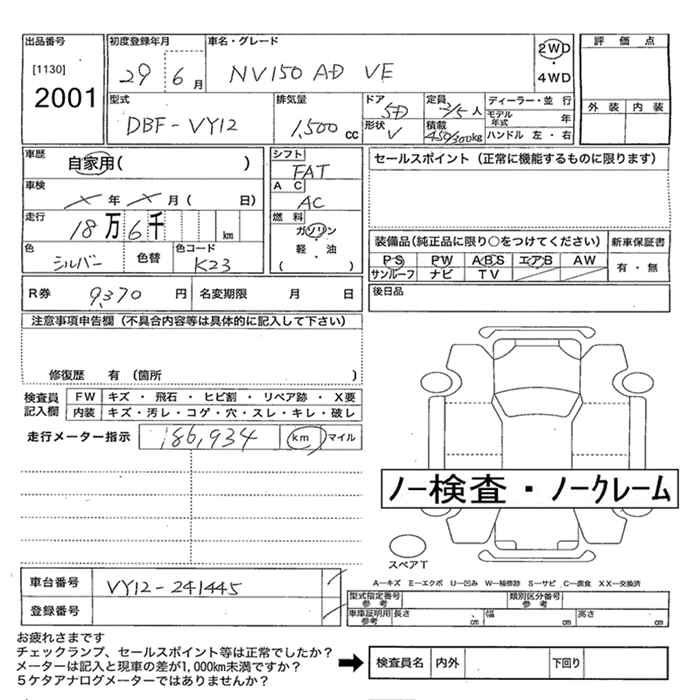 出品番号
[1130]
2001
初度登録年月
29 6 月
車名・グレード
NV150 AD VE
2WD
4WD
評価点
外装 内装
型式
DBF-VY12
排気量
1,500 cc
ドア
5D
形状
V
定員
2/5 人
積載
450/300kg
ディーラー・並行
モデル年式 年
ハンドル 左・右
車歴
自家用( )
車検
年 月( 日)
走行
18万6千 km
色
シルバー
色替
色コード
K23
シフト
FAT
A C
AC
燃料
ガソリン
軽・油
( )
セールスポイント(正常に機能するものに限ります)
装備品(純正品に限り○をつけてください)
新車保証書
PS PW ABS エアB AW
サンルーフ ナビ TV
有・無
R券 9,370 円
名変期限 月 日
後日品
注意事項申告欄(不具合内容等は具体的に記入して下さい)
修復歴 有(箇所 )
検査員記入欄
FW キズ・飛石・ヒビ割・リペア跡・X要
内装 キズ・汚レ・コゲ・穴・スレ・キレ・破レ
走行メーター指示 186,934 km マイル
ノー検査・ノークレーム
スペアT
A―キズ E―エクボ U―凹み W―補修跡 S―サビ C―腐食 XX―交換済
車台番号 VY12-241445
登録番号
型式指定番号 参考
類別区分番号 参考
車庫証明用 参考
長さ cm 幅 cm 高さ cm
お疲れさまです
チェックランプ、セールスポイント等は正常でしたか?
メーターは記入と現車の差が1,000km未満ですか?
5ケタアナログメーターではありませんか?
➡ 検査員名 内外 下回り